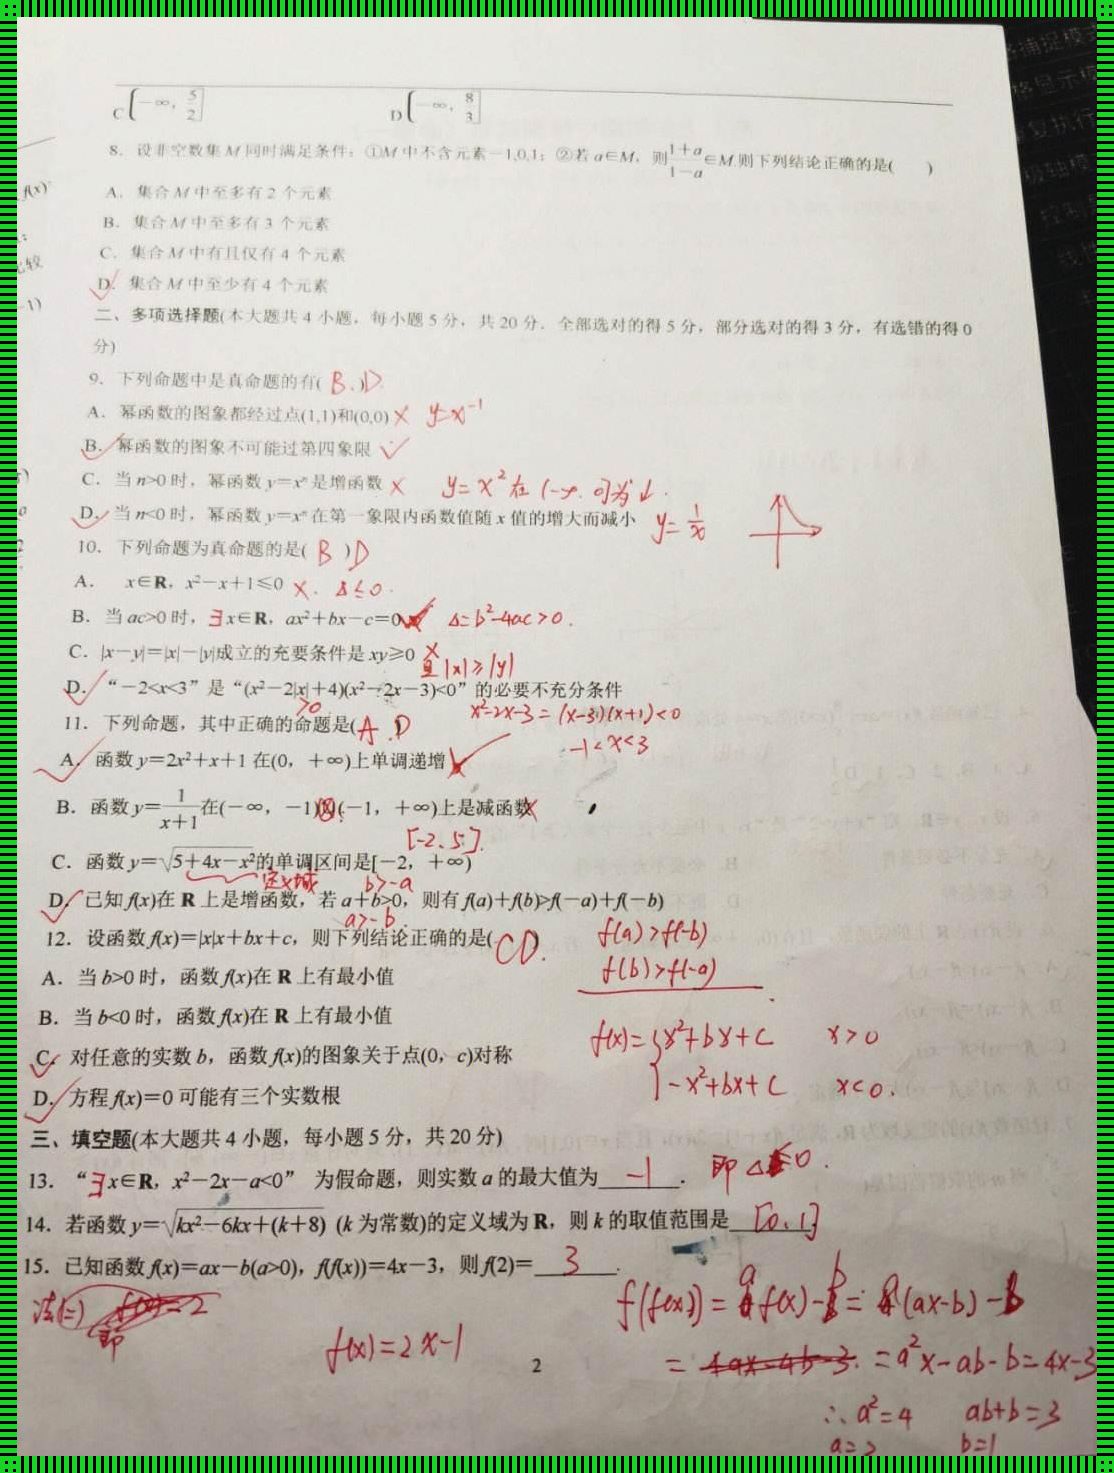 C (−∞, 5/2]	D (−∞, 8/3]
8．设非空数集 M 同时满足条件：①M 中不含元素−1,0,1；②若 a∈M，则(1+a)/(1−a)∈M.则下列结论正确的是(　　)
A．集合 M 中至多有 2 个元素
B．集合 M 中至多有 3 个元素
C．集合 M 中有且仅有 4 个元素
D．集合 M 中至少有 4 个元素
二、多项选择题(本大题共 4 小题，每小题 5 分，共 20 分．全部选对的得 5 分，部分选对的得 3 分，有选错的得 0
分)
9．下列命题中是真命题的有( B、D )
A．幂函数的图象都经过点(1,1)和(0,0) × y=x⁻¹
B．幂函数的图象不可能过第四象限 ✓
C．当 n>0 时，幂函数 y=xⁿ 是增函数 × y=x²在(-∞,0)为↓.
D．当 n<0 时，幂函数 y=xⁿ 在第一象限内函数值随 x 值的增大而减小 y=1/x
10．下列命题为真命题的是( B )D
A．　x∈R，x²−x+1≤0 ×. Δ≤0.
B．当 ac>0 时，∃x∈R，ax²+bx−c=0 Δ=b²-4ac>0.
C．|x−y|=|x|−|y|成立的充要条件是 xy≥0 ×
且|x|≥|y|
D．“−2<x<3”是“(x²−2|x|+4)(x²−2x−3)<0”的必要不充分条件
>0 x²-2x-3=(x-3)(x+1)<0
-1<x<3
11．下列命题，其中正确的命题是( A、D )
A．函数 y=2x²+x+1 在(0，+∞)上单调递增
B．函数 y=1/(x+1)在(−∞，−1)∪(−1，+∞)上是减函数 ×
[-2、5].
C．函数 y=√(5+4x−x²)的单调区间是[−2，+∞)
定义域 b>-a
D．已知 f(x)在 R 上是增函数，若 a+b>0，则有 f(a)+f(b)>f(−a)+f(−b)
a>-b
12．设函数 f(x)=|x|x+bx+c，则下列结论正确的是( CD ). f(a)>f(-b)
f(b)>f(-a)
A．当 b>0 时，函数 f(x)在 R 上有最小值
B．当 b<0 时，函数 f(x)在 R 上有最小值
f(x)={x²+bx+c x>0
C．对任意的实数 b，函数 f(x)的图象关于点(0，c)对称
-x²+bx+c x<0.
D．方程 f(x)=0 可能有三个实数根
三、填空题(本大题共 4 小题，每小题 5 分，共 20 分)
13．“∃x∈R，x²−2x−a<0” 为假命题，则实数 a 的最大值为 -1 ． 即Δ≤0.
14．若函数 y=√(kx²−6kx+(k+8)) (k 为常数)的定义域为 R，则 k 的取值范围是 [0、1]
15．已知函数 f(x)=ax−b(a>0)，f(f(x))=4x−3，则 f(2)= 3 .
f(f(x))=af(x)-b=a(ax-b)-b
f(x)=2x-1
=a²x-ab-b=4x-3
∴a²=4 ab+b=3
a=2 b=1
2